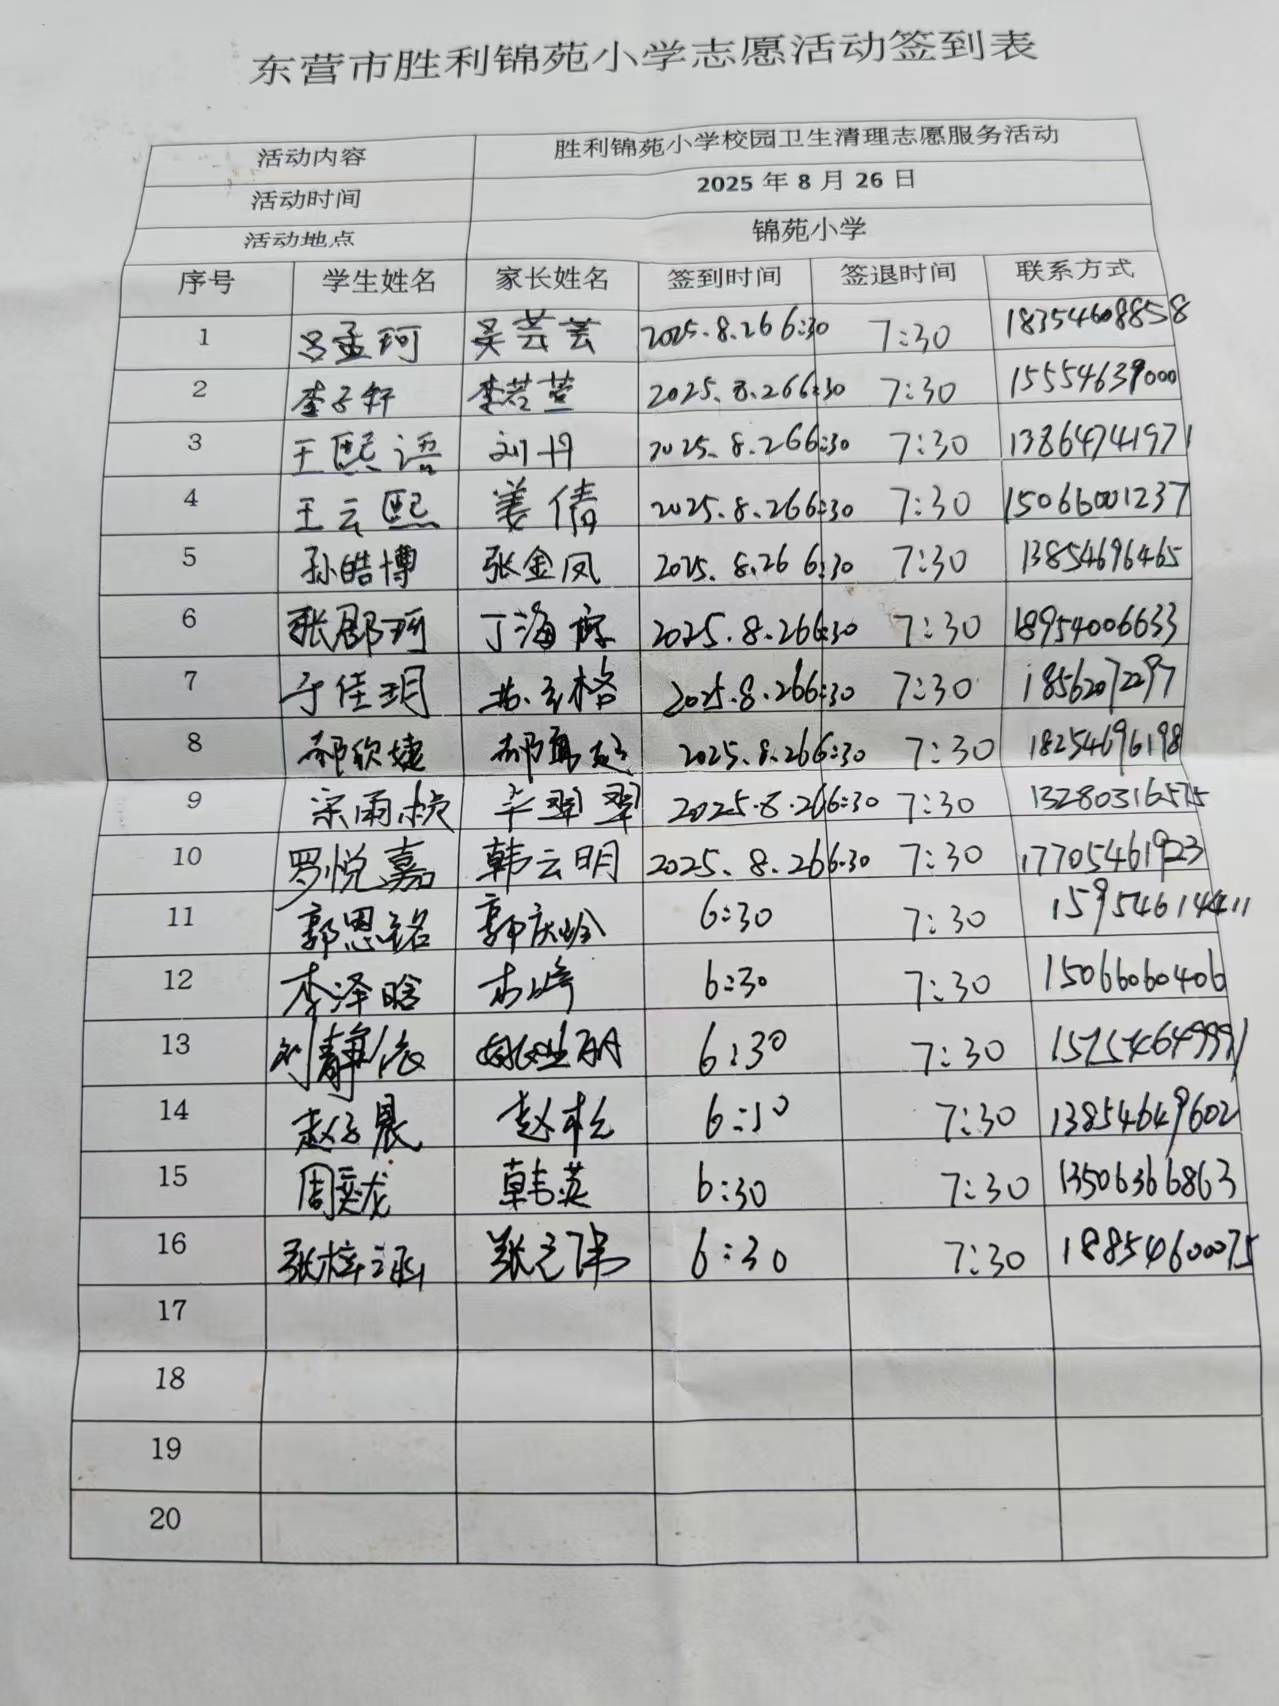 东营市胜利锦苑小学志愿活动签到表
活动内容 胜利锦苑小学校园卫生清理志愿服务活动
活动时间 2025 年 8 月 26 日
活动地点 锦苑小学
序号 学生姓名 家长姓名 签到时间 签退时间 联系方式
1 吕孟珂 吴芸芸 2025.8.26 6:30 7:30 18354608858
2 李子轩 李若萱 2025.8.26 6:30 7:30 15554639000
3 王熙语 刘丹 2025.8.26 6:30 7:30 13864741971
4 王云熙 姜倩 2025.8.26 6:30 7:30 15066001237
5 孙皓博 张金凤 2025.8.26 6:30 7:30 13854696465
6 张郡珂 丁海 2025.8.26 6:30 7:30 18954006633
7 于佳玥 格 2025.8.26 6:30 7:30 18562072297
8 郝欣婕 郝 2025.8.26 6:30 7:30 18254696198
9 宋雨 翠翠 2025.8.26 6:30 7:30 13280316575
10 罗悦嘉 韩云明 2025.8.26 6:30 7:30 17705461923
11 郭恩铭 郭庆 6:30 7:30 15954614411
12 李泽晗 6:30 7:30 15066060406
13 刘静依 6:30 7:30
14 赵子晨 赵松 6:30 7:30 13854649602
15 周奕龙 韩英 6:30 7:30 13506366863
16 张梓涵 张元伟 6:30 7:30 18854600075
17
18
19
20